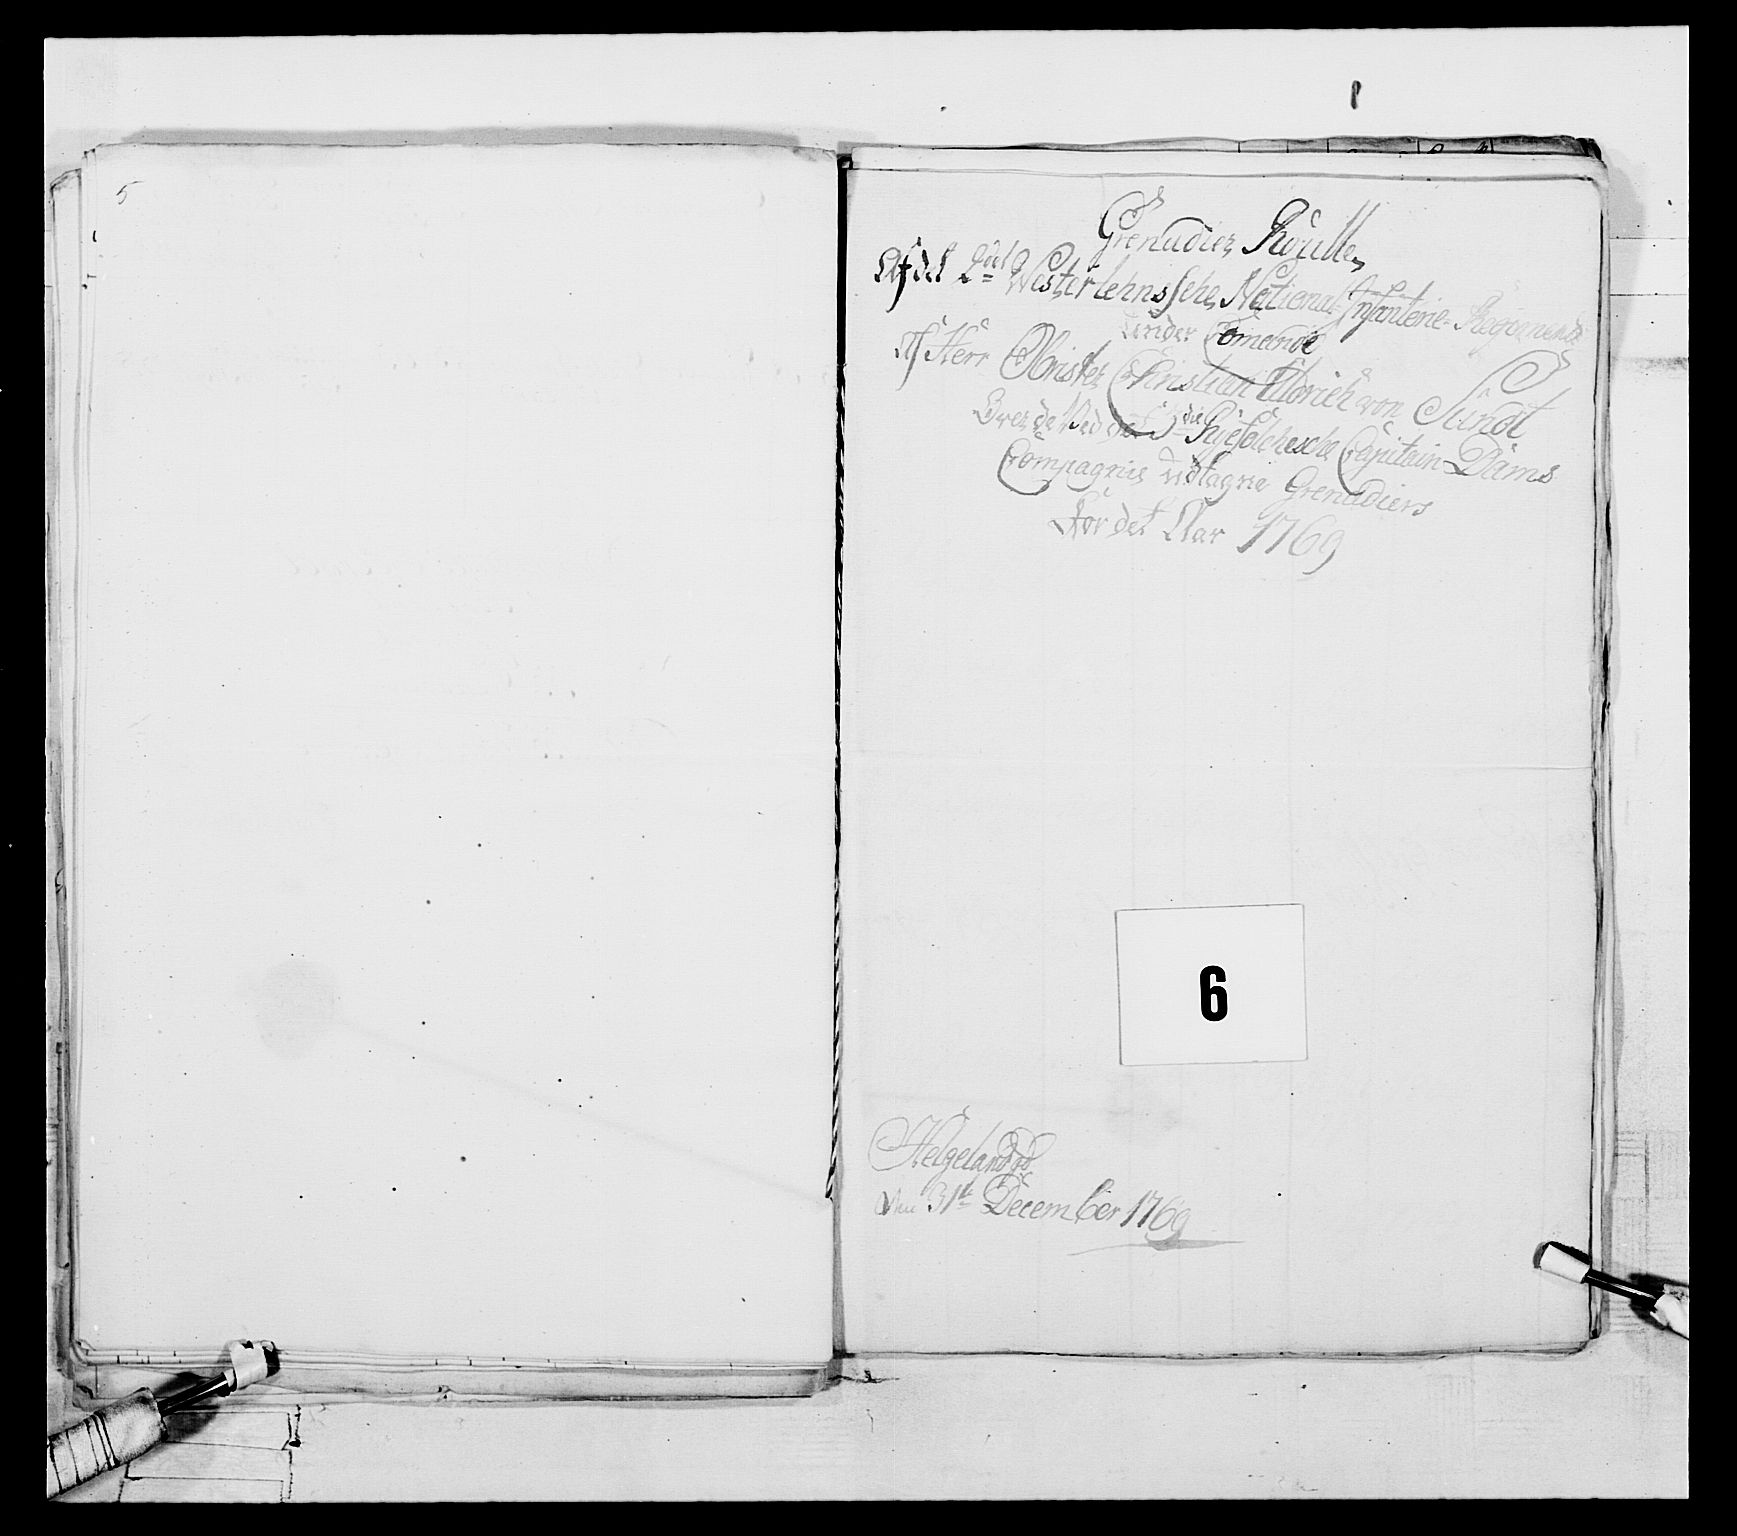 5
Grenadier Roulle
Af det 2det Westerlehnssche National Infanterie-Regiment
under Comando
af Herr Obrister Christian Uldrich von Sundt
Over de Ved det Ryefölchesche Capitain Dams
Compagnie udtagne Grenadiers
For det Aar 1769
6
Helgeland
den 31te December 1769